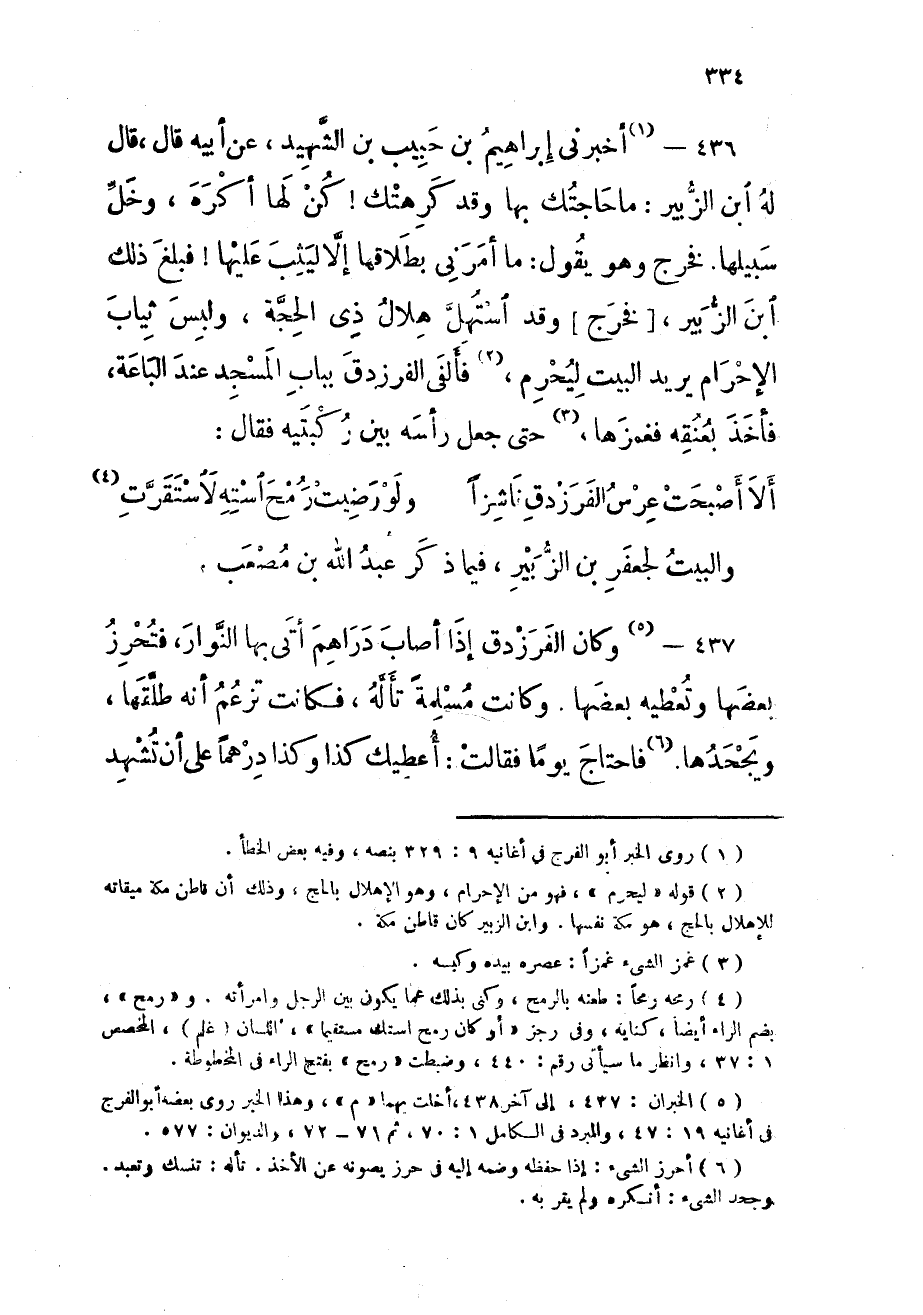 ٣٣٤
٤٣٦ — (١) أخبرنى إبراهيمُ بن حَبِيب بن الشَّهيد ، عن أبيه قال ، قال
لهُ ٱبن الزُّبير : ما حَاجتُك بها وقد كَرِهتْك ! كُنْ لها أكْرَهَ ، وخَلِّ
سَبيلها. فخرج وهو يقُول : ما أمَرَنِي بطَلاقها إلَّا ليَثِبَ عَليْها ! فبلغَ ذلك
ٱبنَ الزُّبَير ، [ فخَرجَ ] وقد ٱسْتُهِلَّ هِلالُ ذِى الحِجَّة ، ولبِسَ ثِيابَ
الإحْرَام يريد البيت لِيُحْرِم ، (٢) فأَلفَى الفرزدقَ ببابِ المَسْجِد عندَ البَاعَة،
فأخَذَ بعُنُقِه فغمزَها ، (٣) حتى جعل رأسَه بين رُكْبتَيه فقال :
أَلاَ أَصْبَحَتْ عِرْسُ الفَرَزْدقِ نَاشِزاً ولَوْ رَضِيتْ رُمْحَ ٱسْتِهِ لَٱسْتَقَرَّتِ (٤)
والبيتُ لجعفَرِ بن الزُّبَيْرِ ، فيما ذكَر عبدُ الله بن مُصْعَب .
٤٣٧ — (٥) وكان الفَرَزْدق إذَا أصابَ دَرَاهِمَ أتَى بها النَّوارَ، فتُحْرِزُ
بعضَها وتُعْطيه بعضَها . وكانت مُسْلِمةً تأَلَّهُ ، فكانت تزعُمُ أنه طلَّقَها ،
ويَجْحَدُها. (٦) فاحتاجَ يومًا فقالتْ : أُعطِيك كذا وكذا دِرْهماً على أن تُشْهِد
( ١ ) روى الخبر أبو الفرج فى أغانيه ٩ : ٣٢٩ بنصه ، وفيه بعض الخطأ .
( ٢ ) قوله « ليحرم » ، فهو من الإحرام ، وهو الإهلال بالحج ، وذلك أن قاطن مكة ميقاته
للإهلال بالحج ، هو مكة نفسها . وابن الزبير كان قاطن مكة .
( ٣ ) غمز الشىء غمزاً : عصره بيده وكبسه .
( ٤ ) رمحه رمحاً : طعنه بالرمح ، وكنى بذلك عما يكون بين الرجل وامرأته . و « رمح » ،
بضم الراء أيضاً ، كناية ، وفى رجز « أو كان رمح استك مستقيما » ، اللسان ( غلم ) ، المخصص
١ : ٣٧ ، وانظر ما سيأتى رقم : ٤٤٠ ، وضبطت « رمح » بفتح الراء فى المخطوطة .
( ٥ ) الخبران : ٤٣٧ ، إلى آخر ٤٣٨، أخلت بهما « م » ، وهذا الخبر روى بعضه أبو الفرج
فى أغانيه ١٩ : ٤٧ ، والمبرد فى الكامل ١ : ٧٠ ، ثم ٧١ – ٧٢ ، والديوان : ٥٧٧ .
( ٦ ) أحرز الشىء : إذا حفظه وضمه إليه فى حرز يصونه عن الأخذ . تأله : تنسك وتعبد .
وجحد الشىء : أنكره ولم يقر به .